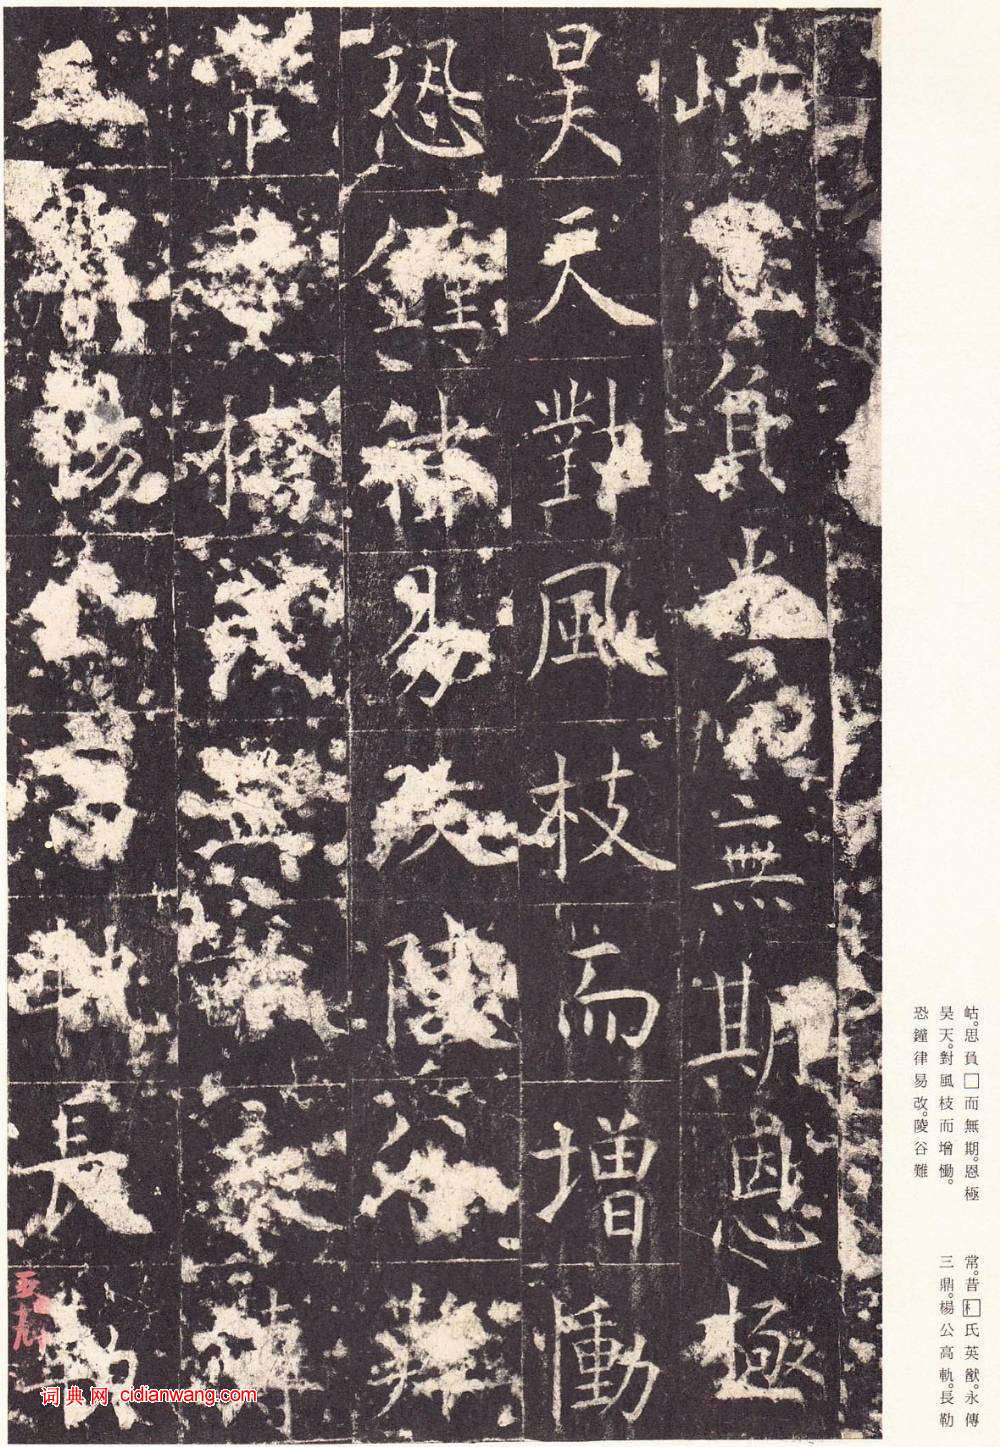 岵思負而無期恩極
昊天對風枝而增慟
恐鐘律易改陵谷難
常昔橋氏英猷永傳
三鼎楊公高軌長勒
岵。思負□而無期。恩極
昊天。對風枝而增慟。
恐鐘律易改。陵谷難
常。昔氏英猷。永傳
三鼎。楊公高軌。長勒
词典网 cidianwang.com